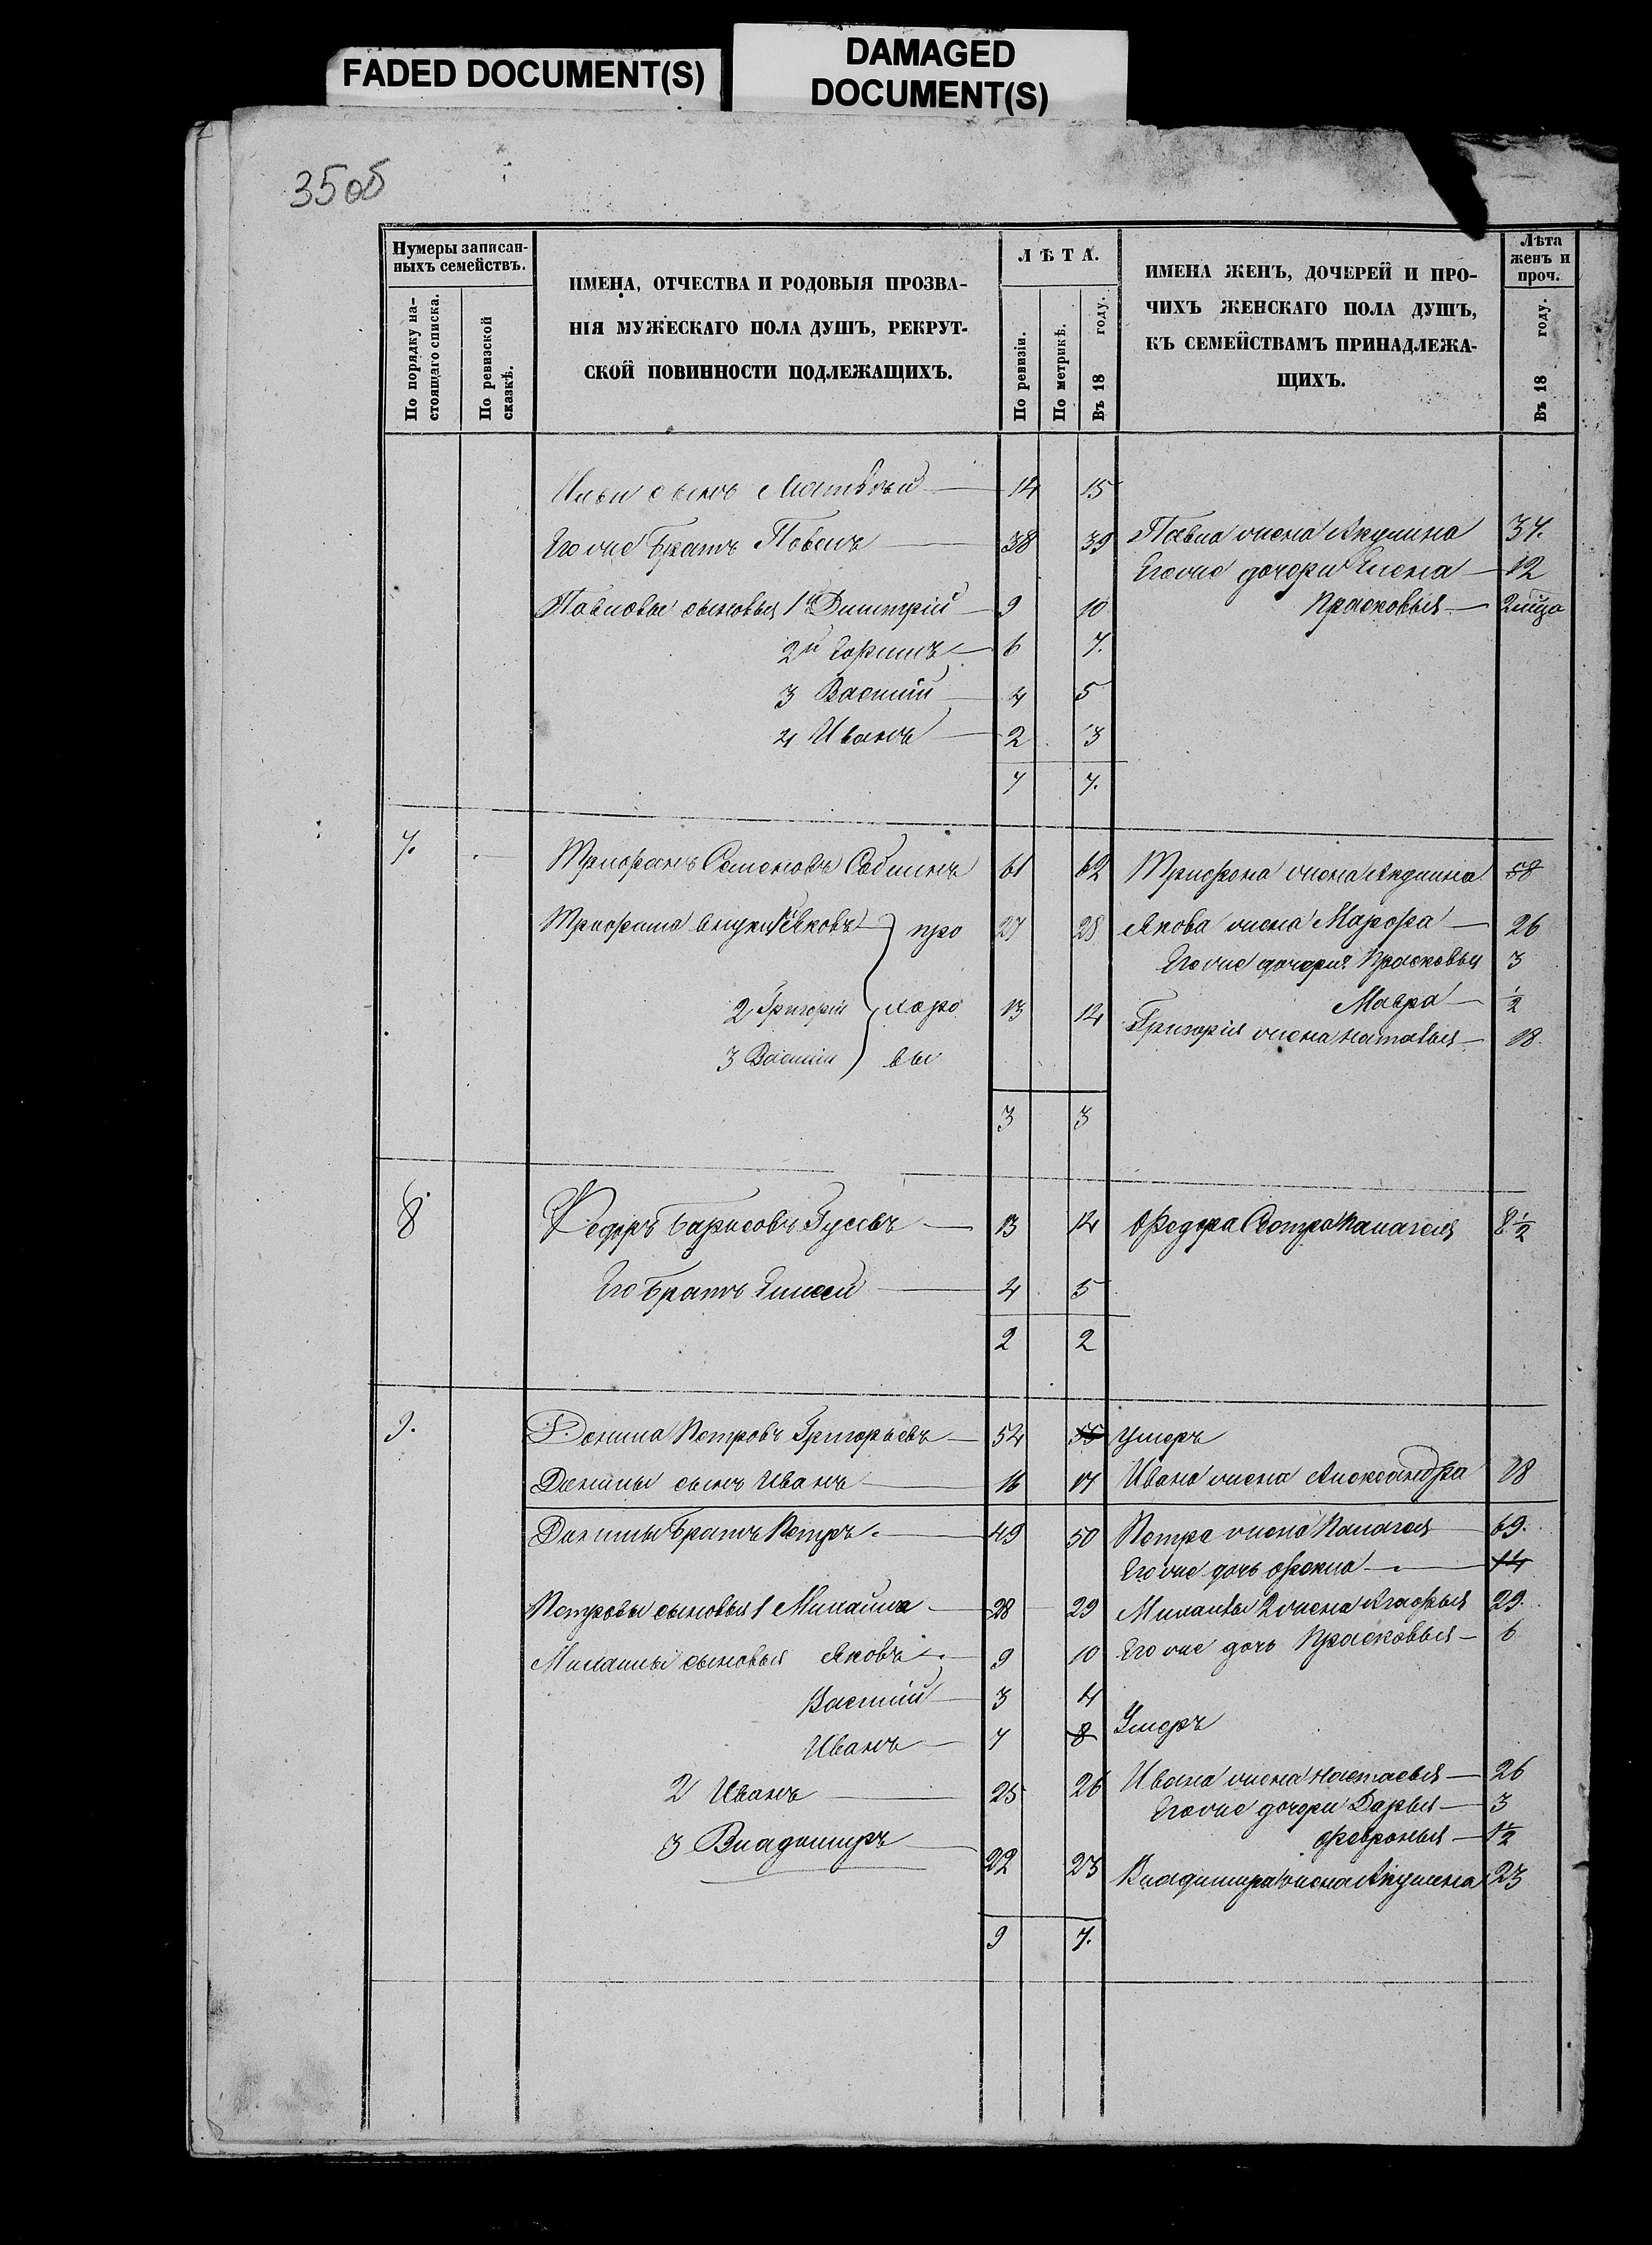 FADED DOCUMENT(S)
DAMAGED
DOCUMENT(S)
35об
Нумеры записан-
ныхъ семействъ.
По порядку на-
стоящаго списка.
По ревизской
сказкѣ.
ИМЕНА, ОТЧЕСТВА И РОДОВЫЯ ПРОЗВА-
НІЯ МУЖЕСКАГО ПОЛА ДУШЪ, РЕКРУТ-
СКОЙ ПОВИННОСТИ ПОДЛЕЖАЩИХЪ.
ЛѢТА.
По ревизіи.
По метрикѣ.
Въ 18 году.
ИМЕНА ЖЕНЪ, ДОЧЕРЕЙ И ПРО-
ЧИХЪ ЖЕНСКАГО ПОЛА ДУШЪ,
КЪ СЕМЕЙСТВАМЪ ПРИНАДЛЕЖА-
ЩИХЪ.
Лѣта
женъ и
проч.
Въ 18 году.
Ильи сынъ Матвѣй 14 15
Егоже братъ Павелъ 38 39 Павла жена Акулина 37.
Егоже дочери Елена 12
Павловы сыновья 1й Дмитрій 9 10 Прасковья
2й 6 7.
3 Василій 4 5
4 Иванъ 2 3
7 7.
7. Трифонъ Семеновъ 61 62 Трифона жена Акулина 58
Трифона внуки 1 Яковъ про 27 28 Якова жена Марфа 26
Егоже дочери Прасковья 3
2 Григорій хоро 13 14 Мавра 1/2
Григорія жена Наталья 18.
3 Василій вы
3 3
8 Федоръ Барисовъ Гусевъ 13 14 Федора сестра Палагея 8 1/2
Его братъ Елисей 4 5
2 2
9. Данила Петровъ Григорьевъ 54 55 Умеръ
Данилы сынъ Иванъ 16 17 Ивана жена Александра 18
Данилы братъ Петръ 49 50 Петра жена Палагея 69.
Егоже дочь Фекла 14
Петровы сыновья 1 Михайла 28 29 Михайлы 2 жена Агафья 29.
Михайлы сыновья Яковъ 9 10 Егоже дочь Прасковья 6
Василій 3 4
Иванъ 7 8 Умеръ
2 Иванъ 25 26 Ивана жена Настасья 26
Егоже дочери Дарья 3
Февронья 1/2
3 Владимиръ 22 23 Владимира жена Акулина 23
9 7.